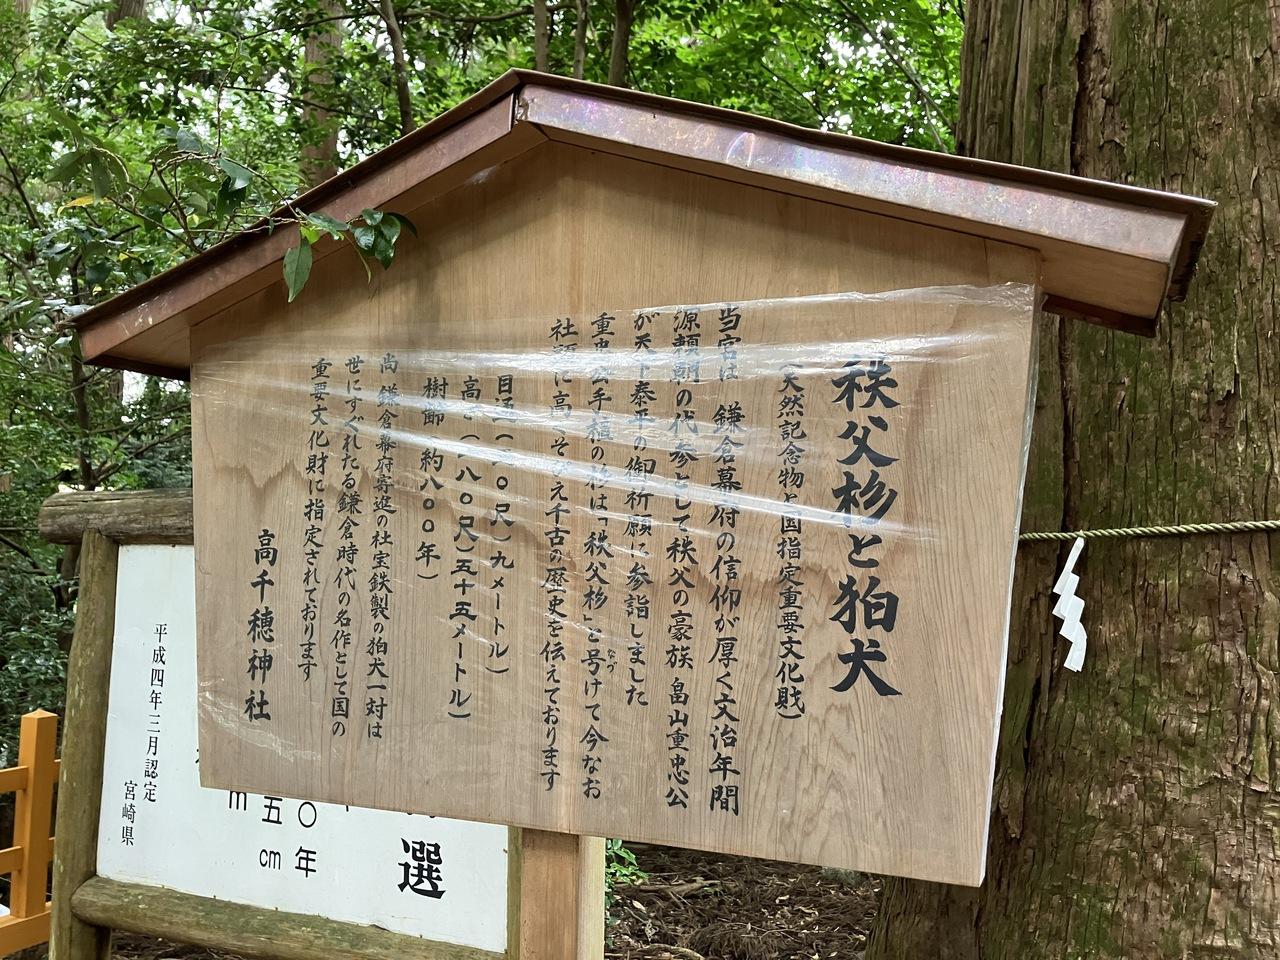 秩父杉と狛犬
(天然記念物と国指定重要文化戝)
当宮は 鎌倉幕府の信仰が厚く文治年間
源頼朝の代参として秩父の豪族 畠山重忠公
が天下泰平の御祈願に参詣しました
重忠公手植の杉は「秩父杉」と号けて今なお
なづ
社頭に高くそびえ千古の歴史を伝えております
目通(三〇尺)九メートル)
高さ(一八〇尺)五十五メートル)
樹齢 約八〇〇年)
尚 鎌倉幕府寄進の社宝鉄製の狛犬一対は
世にすぐれたる鎌倉時代の名作として国の
重要文化財に指定されております
高千穂神社
選
〇年
五〇cm
m
平成四年三月認定
宮崎県